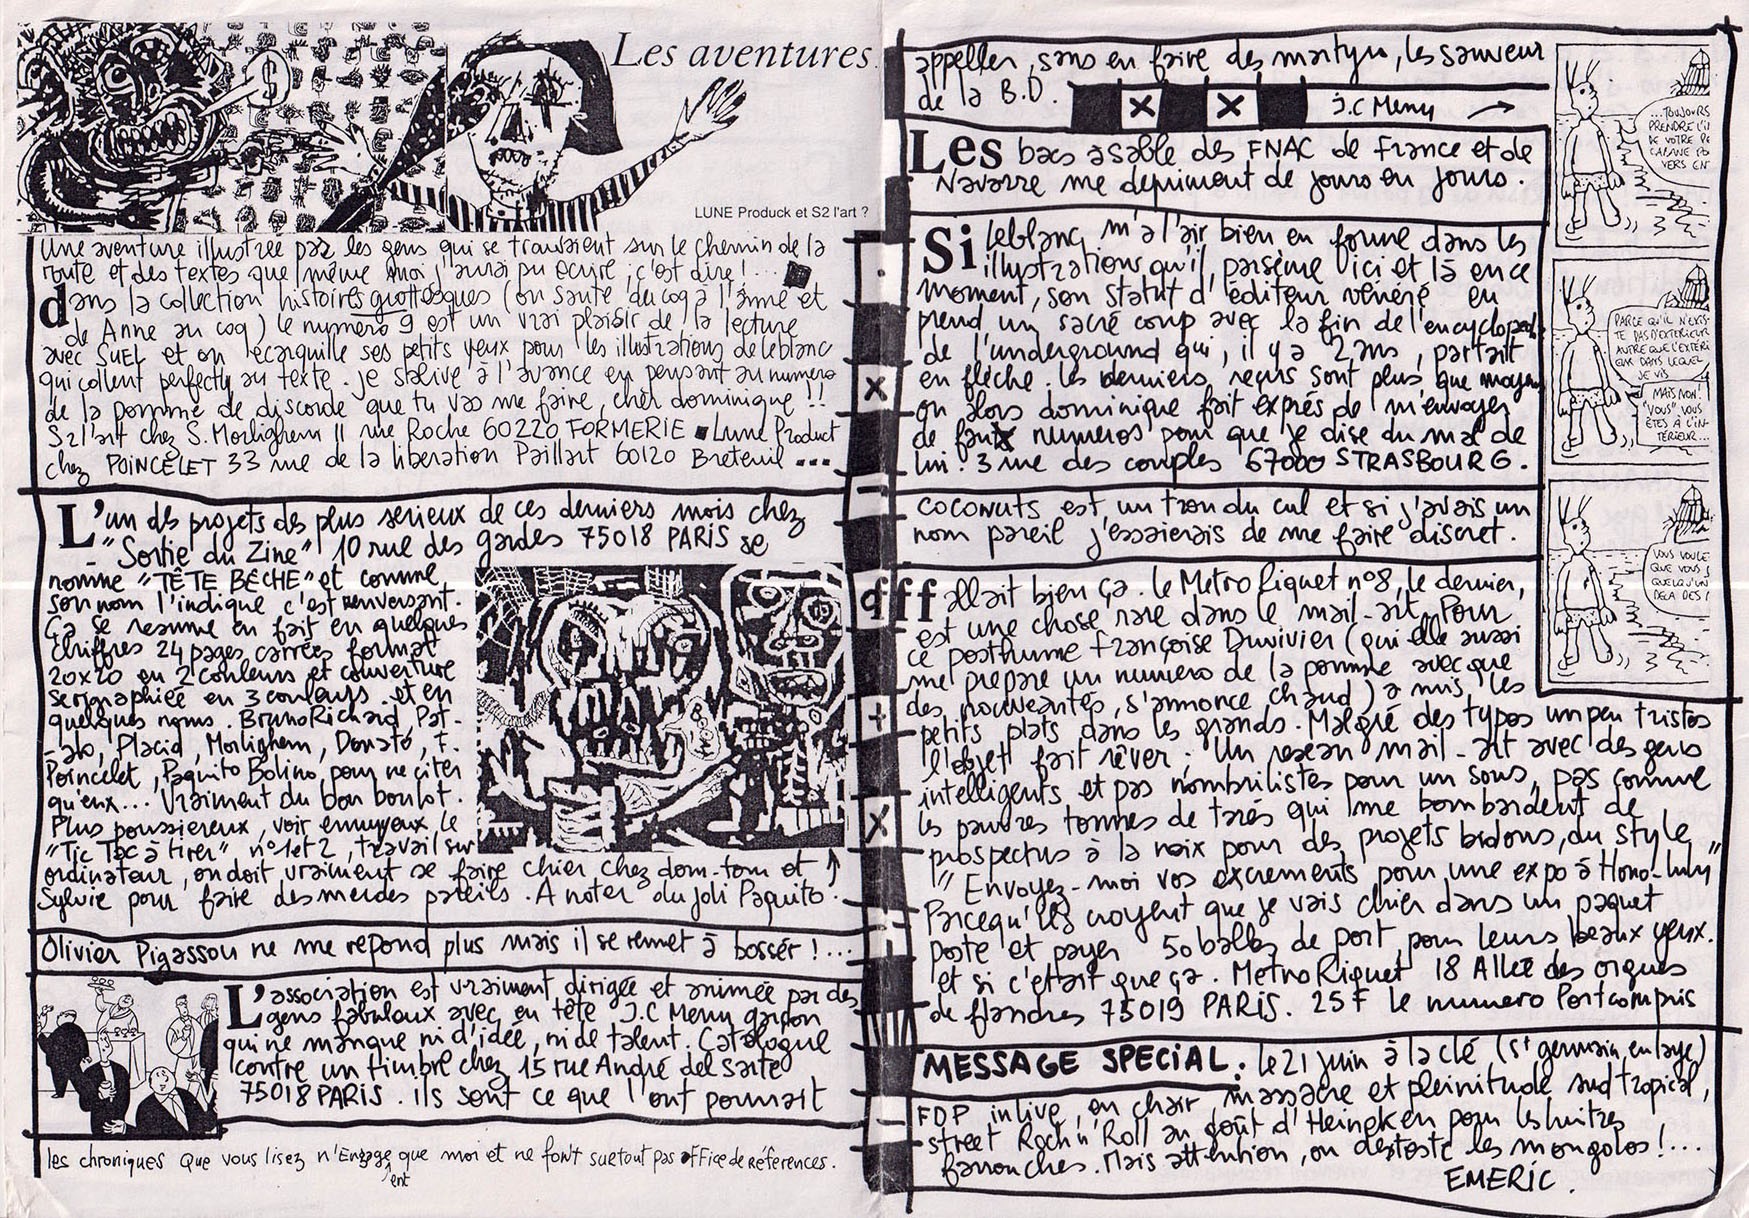 Les aventures
LUNE Produck et S2 l'art ?
Une aventure illustrée par les gens qui se trouvaient sur le chemin de la
route et des textes que même moi j'aurai pu ecrire, c'est dire !...
dans la collection histoires grottesques (on saute du coq à l'anne et
de Anne au coq) le numero 9 est un vrai plaisir de la lecture
avec SUEL et on ecarquille ses petits yeux pour les illustrations de leblanc
qui collent perfectly au texte. je salive à l'avance en pensant au numero
de la pomme de discorde que tu vas me faire, cher dominique !!
S2 l'art chez S. Morlighem 11 rue Roche 60220 FORMERIE ■ Lune Product
chez POINCELET 33 rue de la liberation Paillart 60120 Breteuil ...
L'un des projets des plus serieux de ces derniers mois chez
"Sortie du Zine" 10 rue des gardes 75018 PARIS se
nomme "TÊTE BÊCHE" et comme
son nom l'indique c'est renversant.
Ça se resume en fait en quelques
chiffres 24 pages carrées format
20x20 en 2 couleurs et couverture
serigraphiée en 3 couleurs. et en
quelques noms. Bruno Richard, Pat-
-ab, Placid, Morlighem, Donato, F.
Poincelet, Paquito Bolino, pour ne citer
qu'eux... Vraiment du bon boulot.
Plus poussiereux, voir ennuyeux, le
"Tic Tac à tirer" n°1 et 2, travail sur
ordinateur, on doit vraiment se faire chier chez dom-tom et
Sylvie pour faire des merdes pareils. A noter du joli Paquito.
Olivier Pigassou ne me repond plus mais il se remet à bosser !...
L'association est vraiment dirigée et animée par des
gens fabulaux avec en tête J.C Menu garçon
qui ne manque ni d'idée, ni de talent. Catalogue
contre un timbre chez 15 rue André del sarte
75018 PARIS. ils sont ce que l'ont pourrait
les chroniques que vous lisez n'Engagent que moi et ne font surtout pas office de références.
appeller, sans en faire des martyrs, les sauveur
de la B.D.
J.C Menu →
Les bacs à sable des FNAC de France et de
Navarre me depriment de jours en jours.
Si leblanc m'a l'air bien en forme dans les
illustrations qu'il parsème ici et là en ce
moment, son statut d'éditeur vénéré en
prend un sacré coup avec la fin de l'encycloped.
de l'underground qui, il y a 2 ans, partait
en flèche. les derniers reçus sont plus que moyen
ou alors dominique fait exprés de m'envoyer
de faux numeros pour que je dise du mal de
lui. 3 rue des couples 67000 STRASBOURG.
coconuts est un trou du cul et si j'avais un
nom pareil j'essaierais de me faire discret.
fallait bien ça. le Metro Riquet n°8, le dernier,
est une chose rare dans le mail-art. Pour
ce posthume Françoise Duvivier (qui elle aussi
me prepare un numero de la pomme avec que
des nouveautés, s'annonce chaud) a mis les
petits plats dans les grands. Malgré des typos un peu tristes
l'objet fait rêver ; Un reseau mail-art avec des gens
intelligents et pas nombrilistes pour un sous, pas comme
les pauvres tonnes de tarés qui me bombardent de
prospectus à la noix pour des projets bidons, du style
"Envoyez-moi vos excrements pour une expo à Hono-lulu"
Parcequ'ils croyent que je vais chier dans un paquet
poste et payer 50 balles de port pour leurs beaux yeux.
et si c'etait que ça. Metro Riquet 18 Allée des orgues
de flandres 75019 PARIS. 25F le numero Port compris
MESSAGE SPECIAL : le 21 juin à la clé (St germain en laye)
massacre et pleinitude sud tropical,
FDP in live, en chair
street Rock n' Roll au goût d'Heineken pour les huitres
farrouches. Mais attention, on déteste les mongolos !...
EMERIC.
...TOUJOURS
PRENDRE L'I
DE VOTRE PE
CABANE
VERS EN
PARCE QU'IL N'EXIS-
TE PAS D'EXTERIEUR
AUTRE QUE L'EXTERI
QUE DANS LEQUEL
JE VIS
MAIS NON !
"VOUS" VOUS
ÊTES A L'IN-
TERIEUR...
VOUS VOULE
QUE VOUS
QUELQU'UN
DELA DES